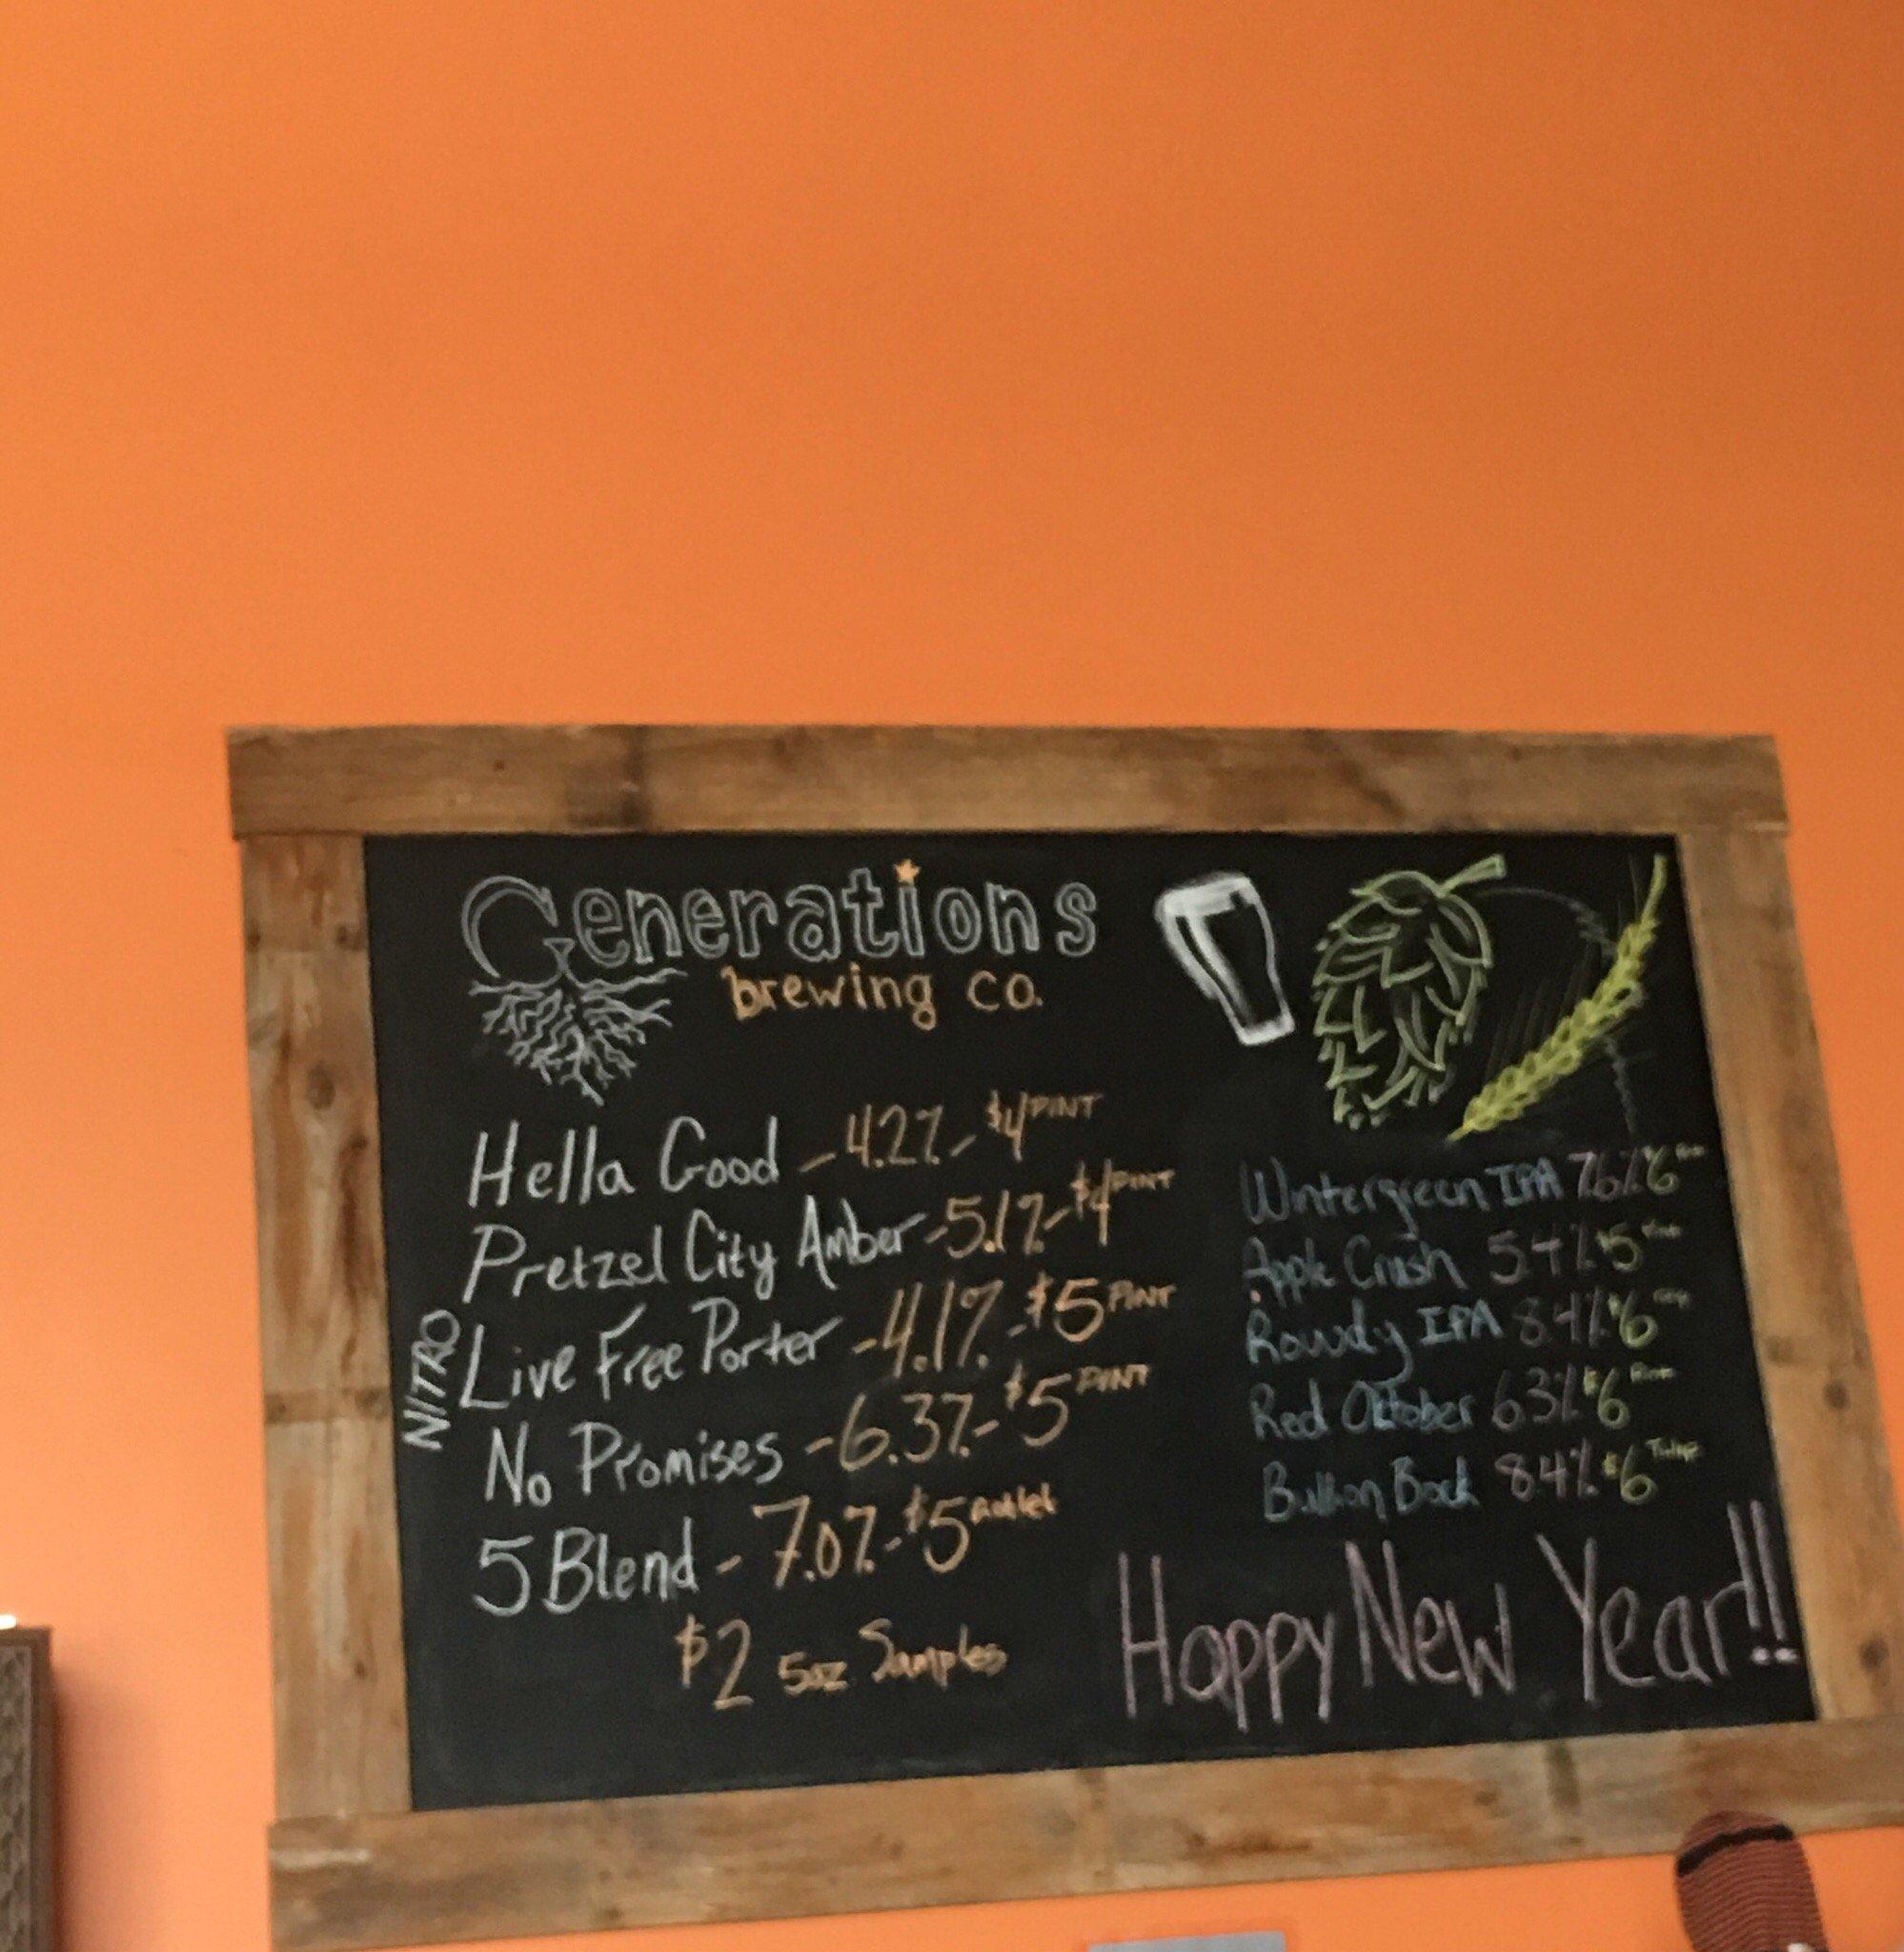 Generations
brewing co.
Hella Good - 4.2% - $4 PINT
Pretzel City Amber - 5.1% - $4 PINT
NITRO
Live Free Porter - 4.1% - $5 PINT
No Promises - 6.3% - $5 PINT
5 Blend - 7.0% - $5 Goblet
$2 5oz Samples
Wintergreen IPA 7.6% $6
Apple Crush 5.4% $5
Rowdy IPA 8.4% $6
Red Oktober 6.3% $6 Pint
Bullion Bock 8.4% $6 Tulip
Happy New Year!!